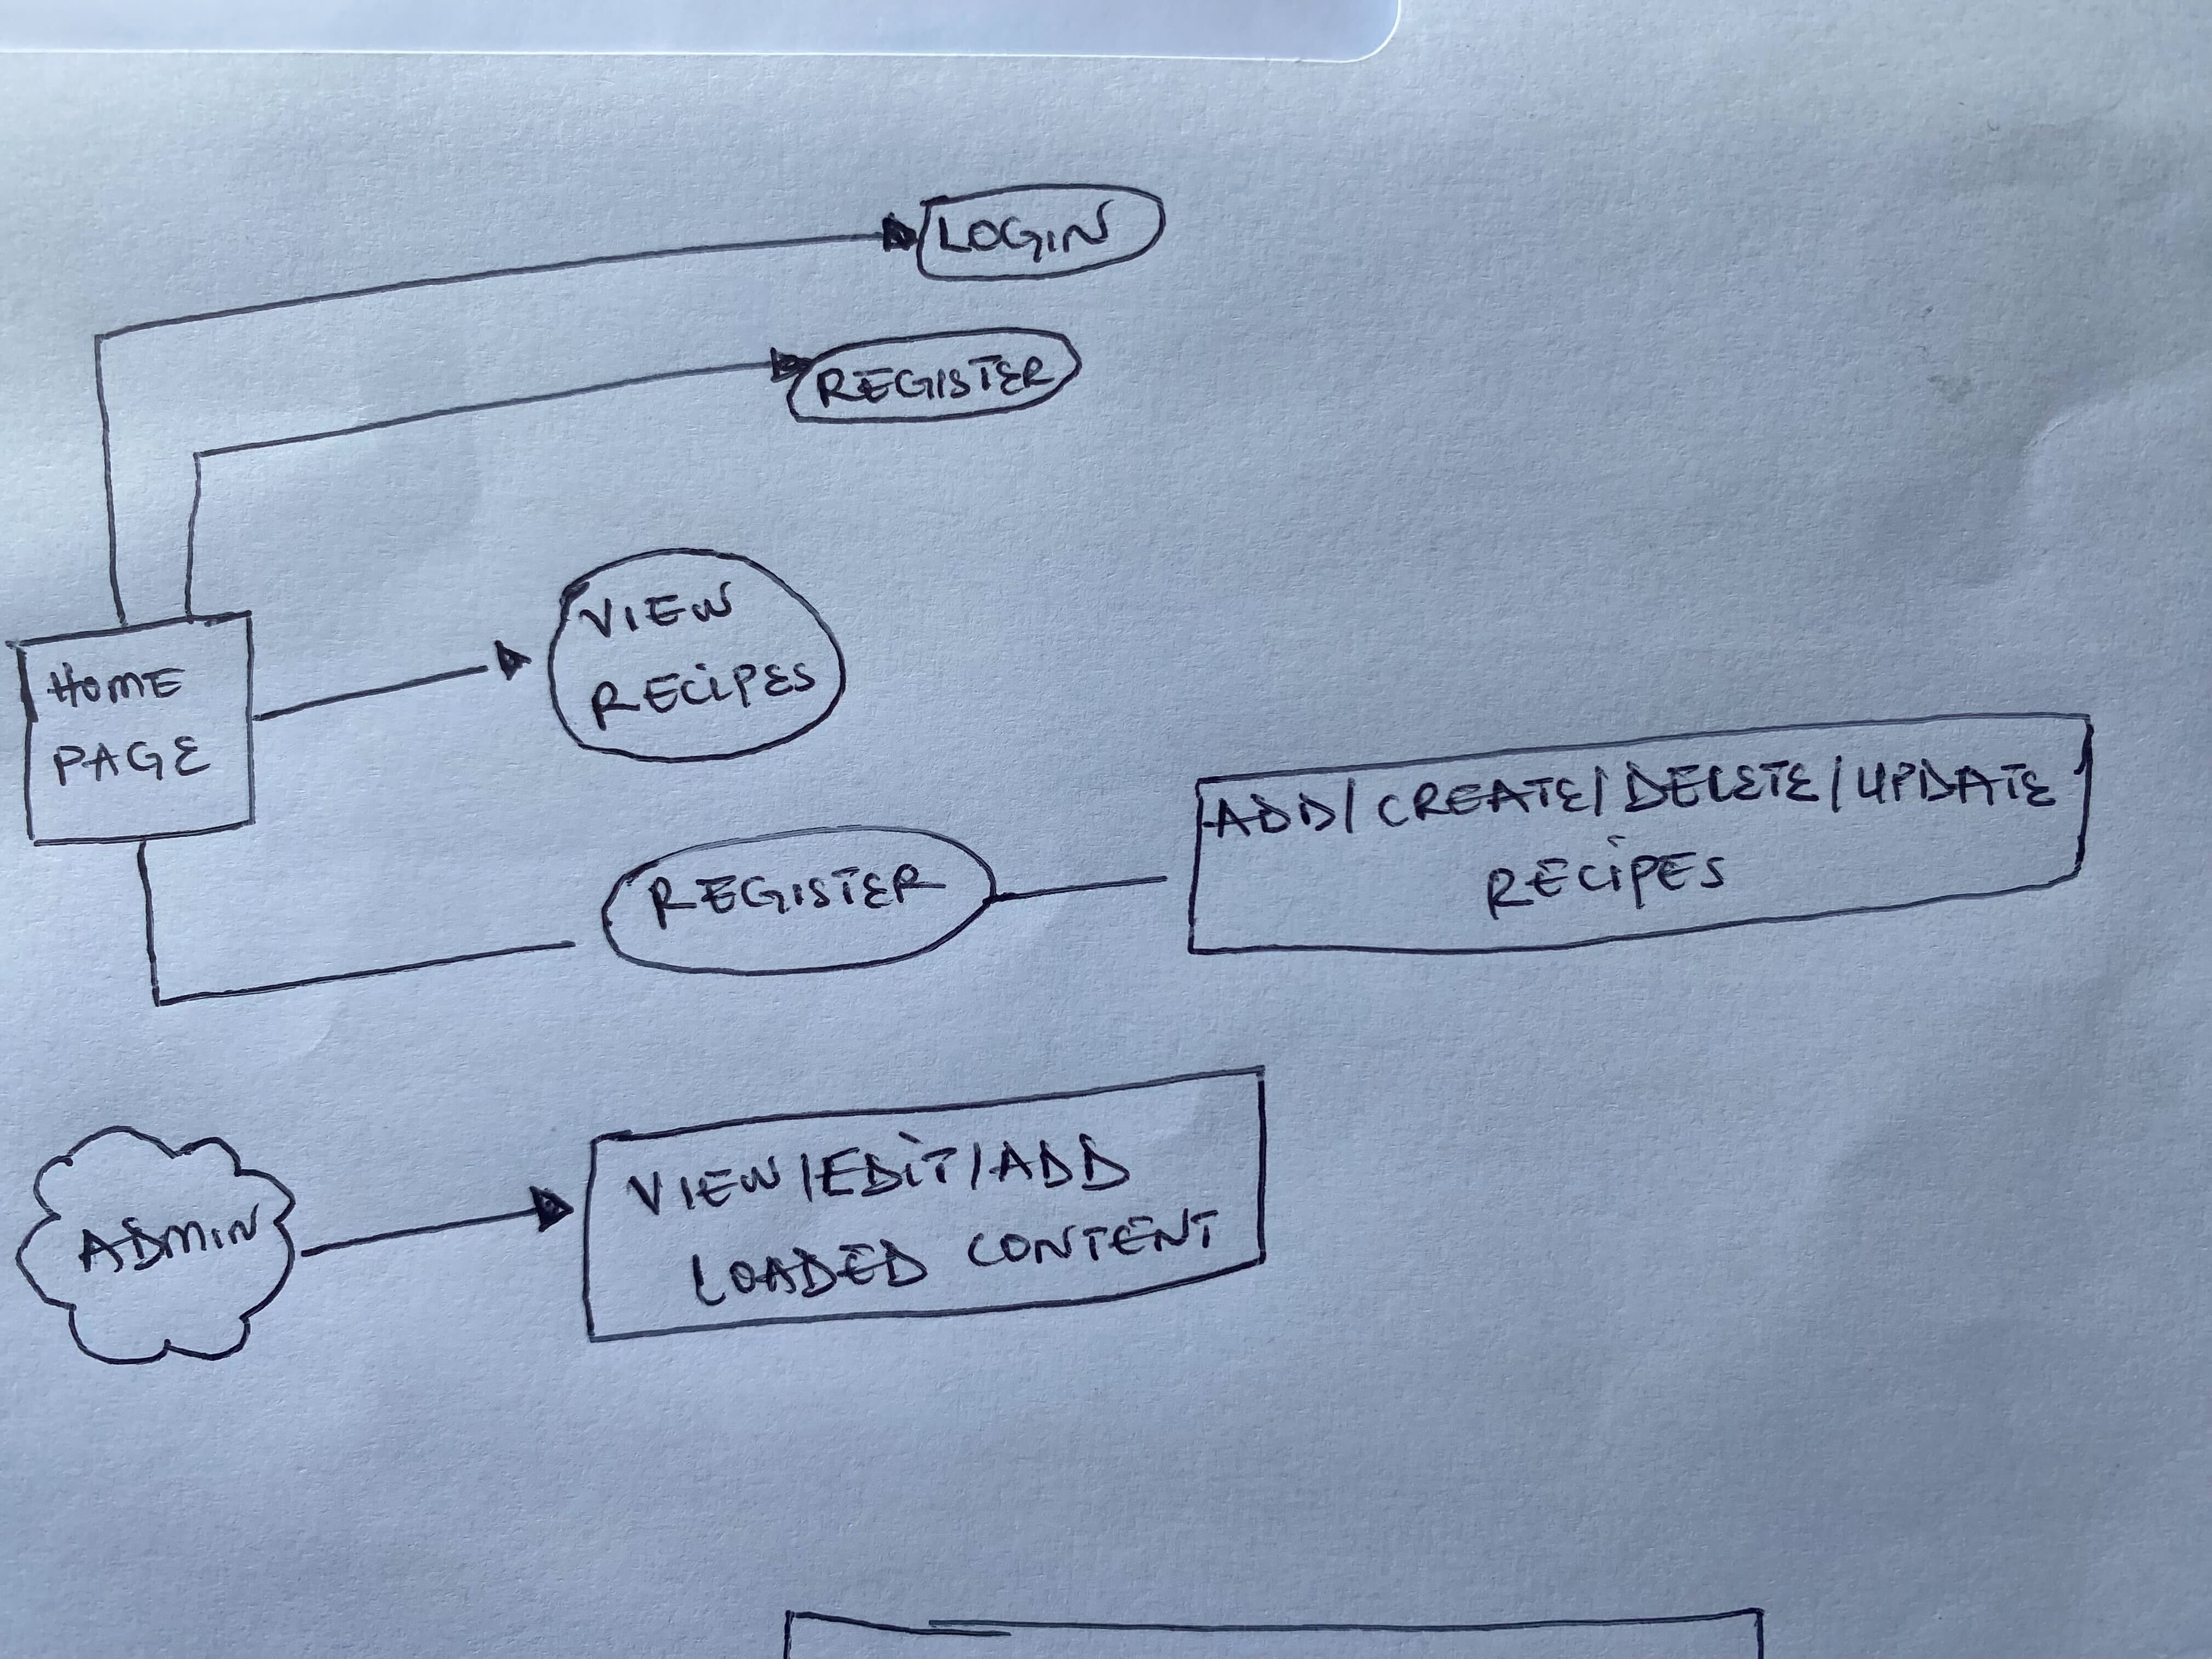 LOGIN
REGISTER
VIEW
RECIPES
HOME
PAGE
REGISTER
ADD/CREATE/DELETE/UPDATE
RECIPES
ADMIN
VIEW/EDIT/ADD
LOADED CONTENT